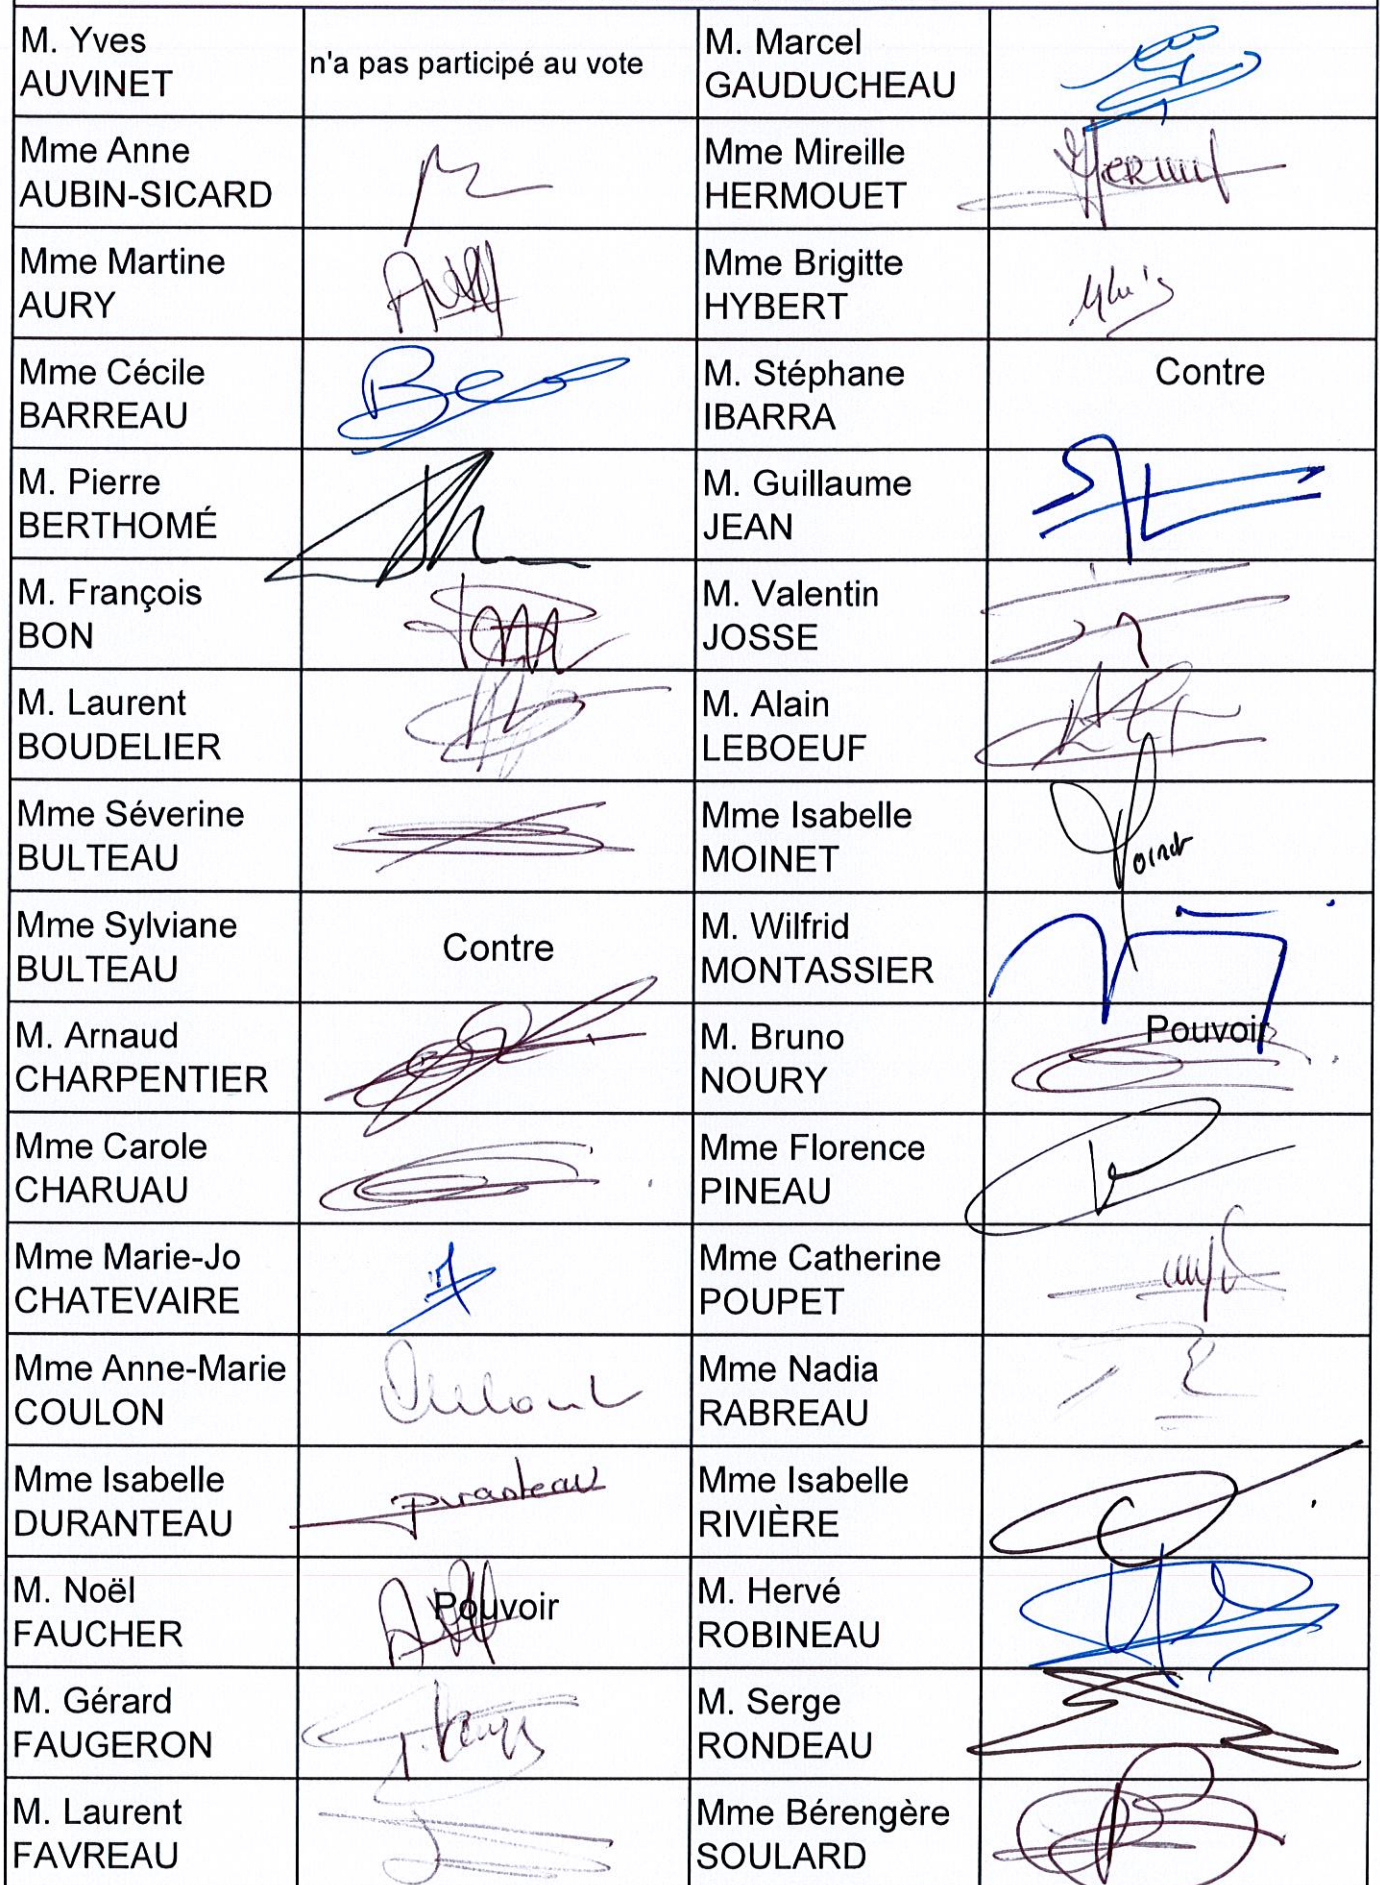 M. Yves
AUVINET
n'a pas participé au vote
M. Marcel
GAUDUCHEAU
Mme Anne
AUBIN-SICARD
Mme Mireille
HERMOUET
Mme Martine
AURY
Mme Brigitte
HYBERT
Mme Cécile
BARREAU
M. Stéphane
IBARRA
Contre
M. Pierre
BERTHOMÉ
M. Guillaume
JEAN
M. François
BON
M. Valentin
JOSSE
M. Laurent
BOUDELIER
M. Alain
LEBOEUF
Mme Séverine
BULTEAU
Mme Isabelle
MOINET
Mme Sylviane
BULTEAU
Contre
M. Wilfrid
MONTASSIER
M. Arnaud
CHARPENTIER
M. Bruno
NOURY
Pouvoir
Mme Carole
CHARUAU
Mme Florence
PINEAU
Mme Marie-Jo
CHATEVAIRE
Mme Catherine
POUPET
Mme Anne-Marie
COULON
Mme Nadia
RABREAU
Mme Isabelle
DURANTEAU
Duranteau
Mme Isabelle
RIVIÈRE
M. Noël
FAUCHER
Pouvoir
M. Hervé
ROBINEAU
M. Gérard
FAUGERON
M. Serge
RONDEAU
M. Laurent
FAVREAU
Mme Bérengère
SOULARD